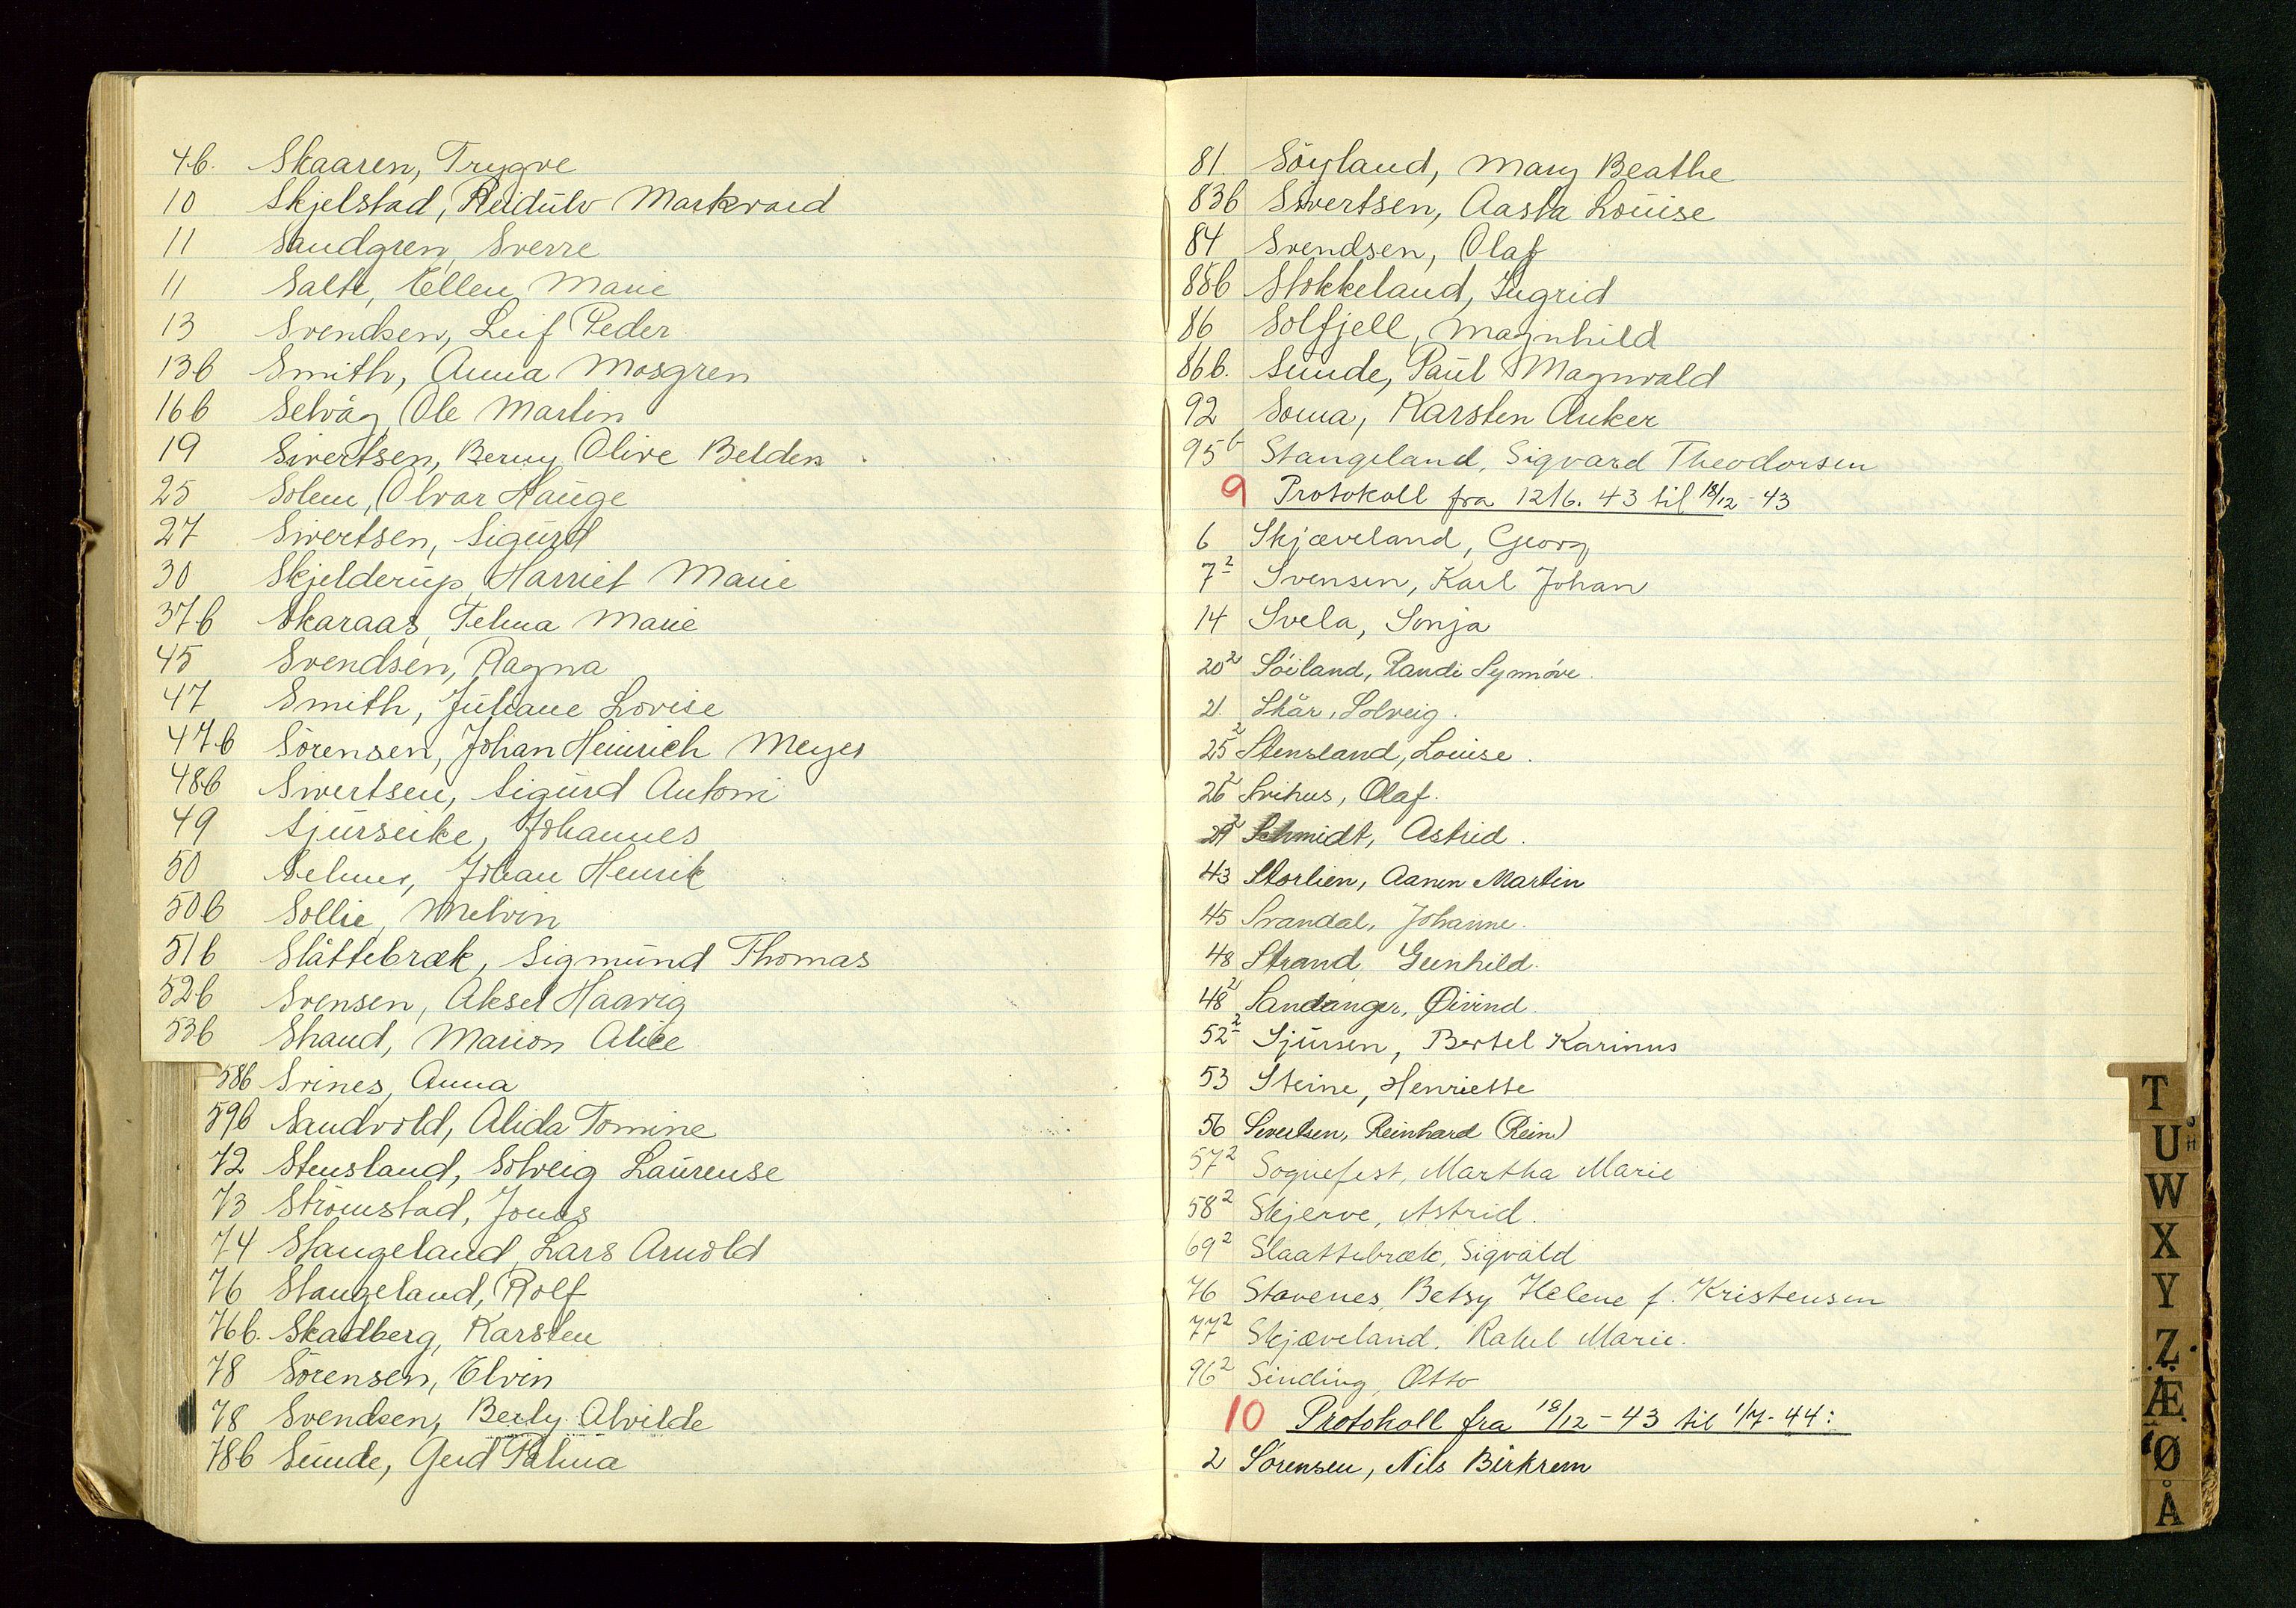 4b. Skaaren, Trygve
10 Skjelstad, Reidulv Markvard
11 Sandgren, Sverre
11 Salte, Ellen Marie
13 Svendsen, Leif Peder
13b Smith, Anna Mosgren
16b Selvåg, Ole Martin
19 Sivertsen, Berny Olive Belden
25 Solem, Olvar Hauge
27 Sivertsen, Sigurd
30 Skjelderup, Harriet Marie
37b Skaraas, Telma Marie
45 Svendsen, Ragna
47 Smith, Juliane Lovise
47b Sörensen, Johan Heinrich Meyer
48b Sivertsen, Sigurd Antoni
49 Sjurseike, Johannes
50 Selmer, Johan Henrik
50b Sollie, Melvin
51b Slåttebræk, Sigmund Thomas
52b Svensen, Aksel Haarvig
53b Shand, Marion Alice
58b Svines, Anna
59b Sandvold, Alida Tomine
72 Stensland, Solveig Laurense
73 Strömstad, Jonas
74 Stangeland, Lars Arnold
76 Stangeland, Rolf
76b. Skadberg, Karsten
78 Sörensen, Elvin
78 Svendsen, Berly Alvilde
78b Sunde, Gerd Palma
81. Söyland, Mary Beathe
83b Sivertsen, Aasta Louise
84 Svendsen, Olaf
85b Stokkeland, Ingrid
86 Solfjell, Magnhild
86b. Sunde, Paul Magnvald
92 Soma, Karsten Anker
95b Stangeland, Sigvard Theodorsen
9 Protokoll fra 12/6. 43 til 18/12-43
6 Skjæveland, Georg
7² Svensen, Karl Johan
14 Svela, Sonja
20² Söiland, Randi Synnöve.
21. Skår, Solveig.
25² Stensland, Louise.
26² Svihus, Olaf.
29² Schmidt, Astrid.
43 Storlien, Aanen Martin
45 Svandal, Johanne.
48 Strand, Gunhild.
48² Sandanger, Øivind.
52² Sjursen, Bertel Karinus
53 Steine, Henriette
56 Sivertsen, Reinhard (Rein)
57² Sognefest, Martha Marie
58² Skjerve, Astrid.
69² Slaattebræk, Sigvald
76 Stavenes, Betsy Helene f. Kristensen
77² Skjæveland, Rakel Marie.
96² Sinding, Otto
10 Protokoll fra 18/12-43 til 1/7-44:
2 Sörensen, Nils Birkrem
T
U
W
X
Y
Z
Æ
Ø
Å